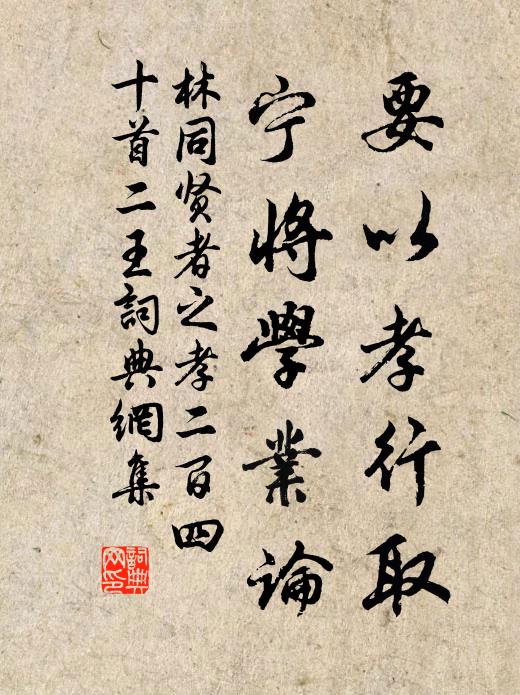 要以孝行取
宁将學業論
林同贤者之孝二百四
十首二王詞典網集
詞典
网印